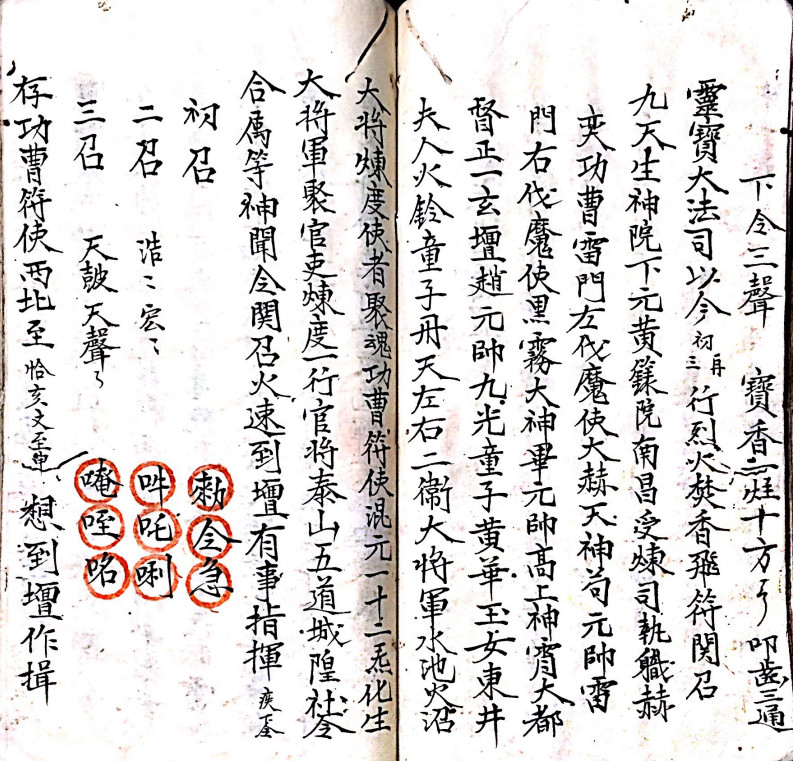 下令三聲　寶香三炷十方〻　叩齒三通
靈寶大法司以今初再三行烈火焚香飛符関召
九天生神院下元黄籙院南昌受煉司執職赫
奕功曹雷門左伐魔使大赫天神苟元帥雷
門右伐魔使黒霧大神畢元帥髙上神霄大都
督正一玄壇趙元帥九光童子黄華玉女東井
夫人火鈴童子丹天左右二衛大将軍水池火沼
大将煉度使者聚魂功曹符使混元一十二炁化生
大将軍聚官吏煉度一行官将泰山五道城隍社令
合属等神聞令関召火速到壇有事指揮
初召　勅令急
二召　浩〻宏〻　吽吒唎
三召　天皷天聲〻　唵咥㗩
存功曹符使西北至　想到壇作揖